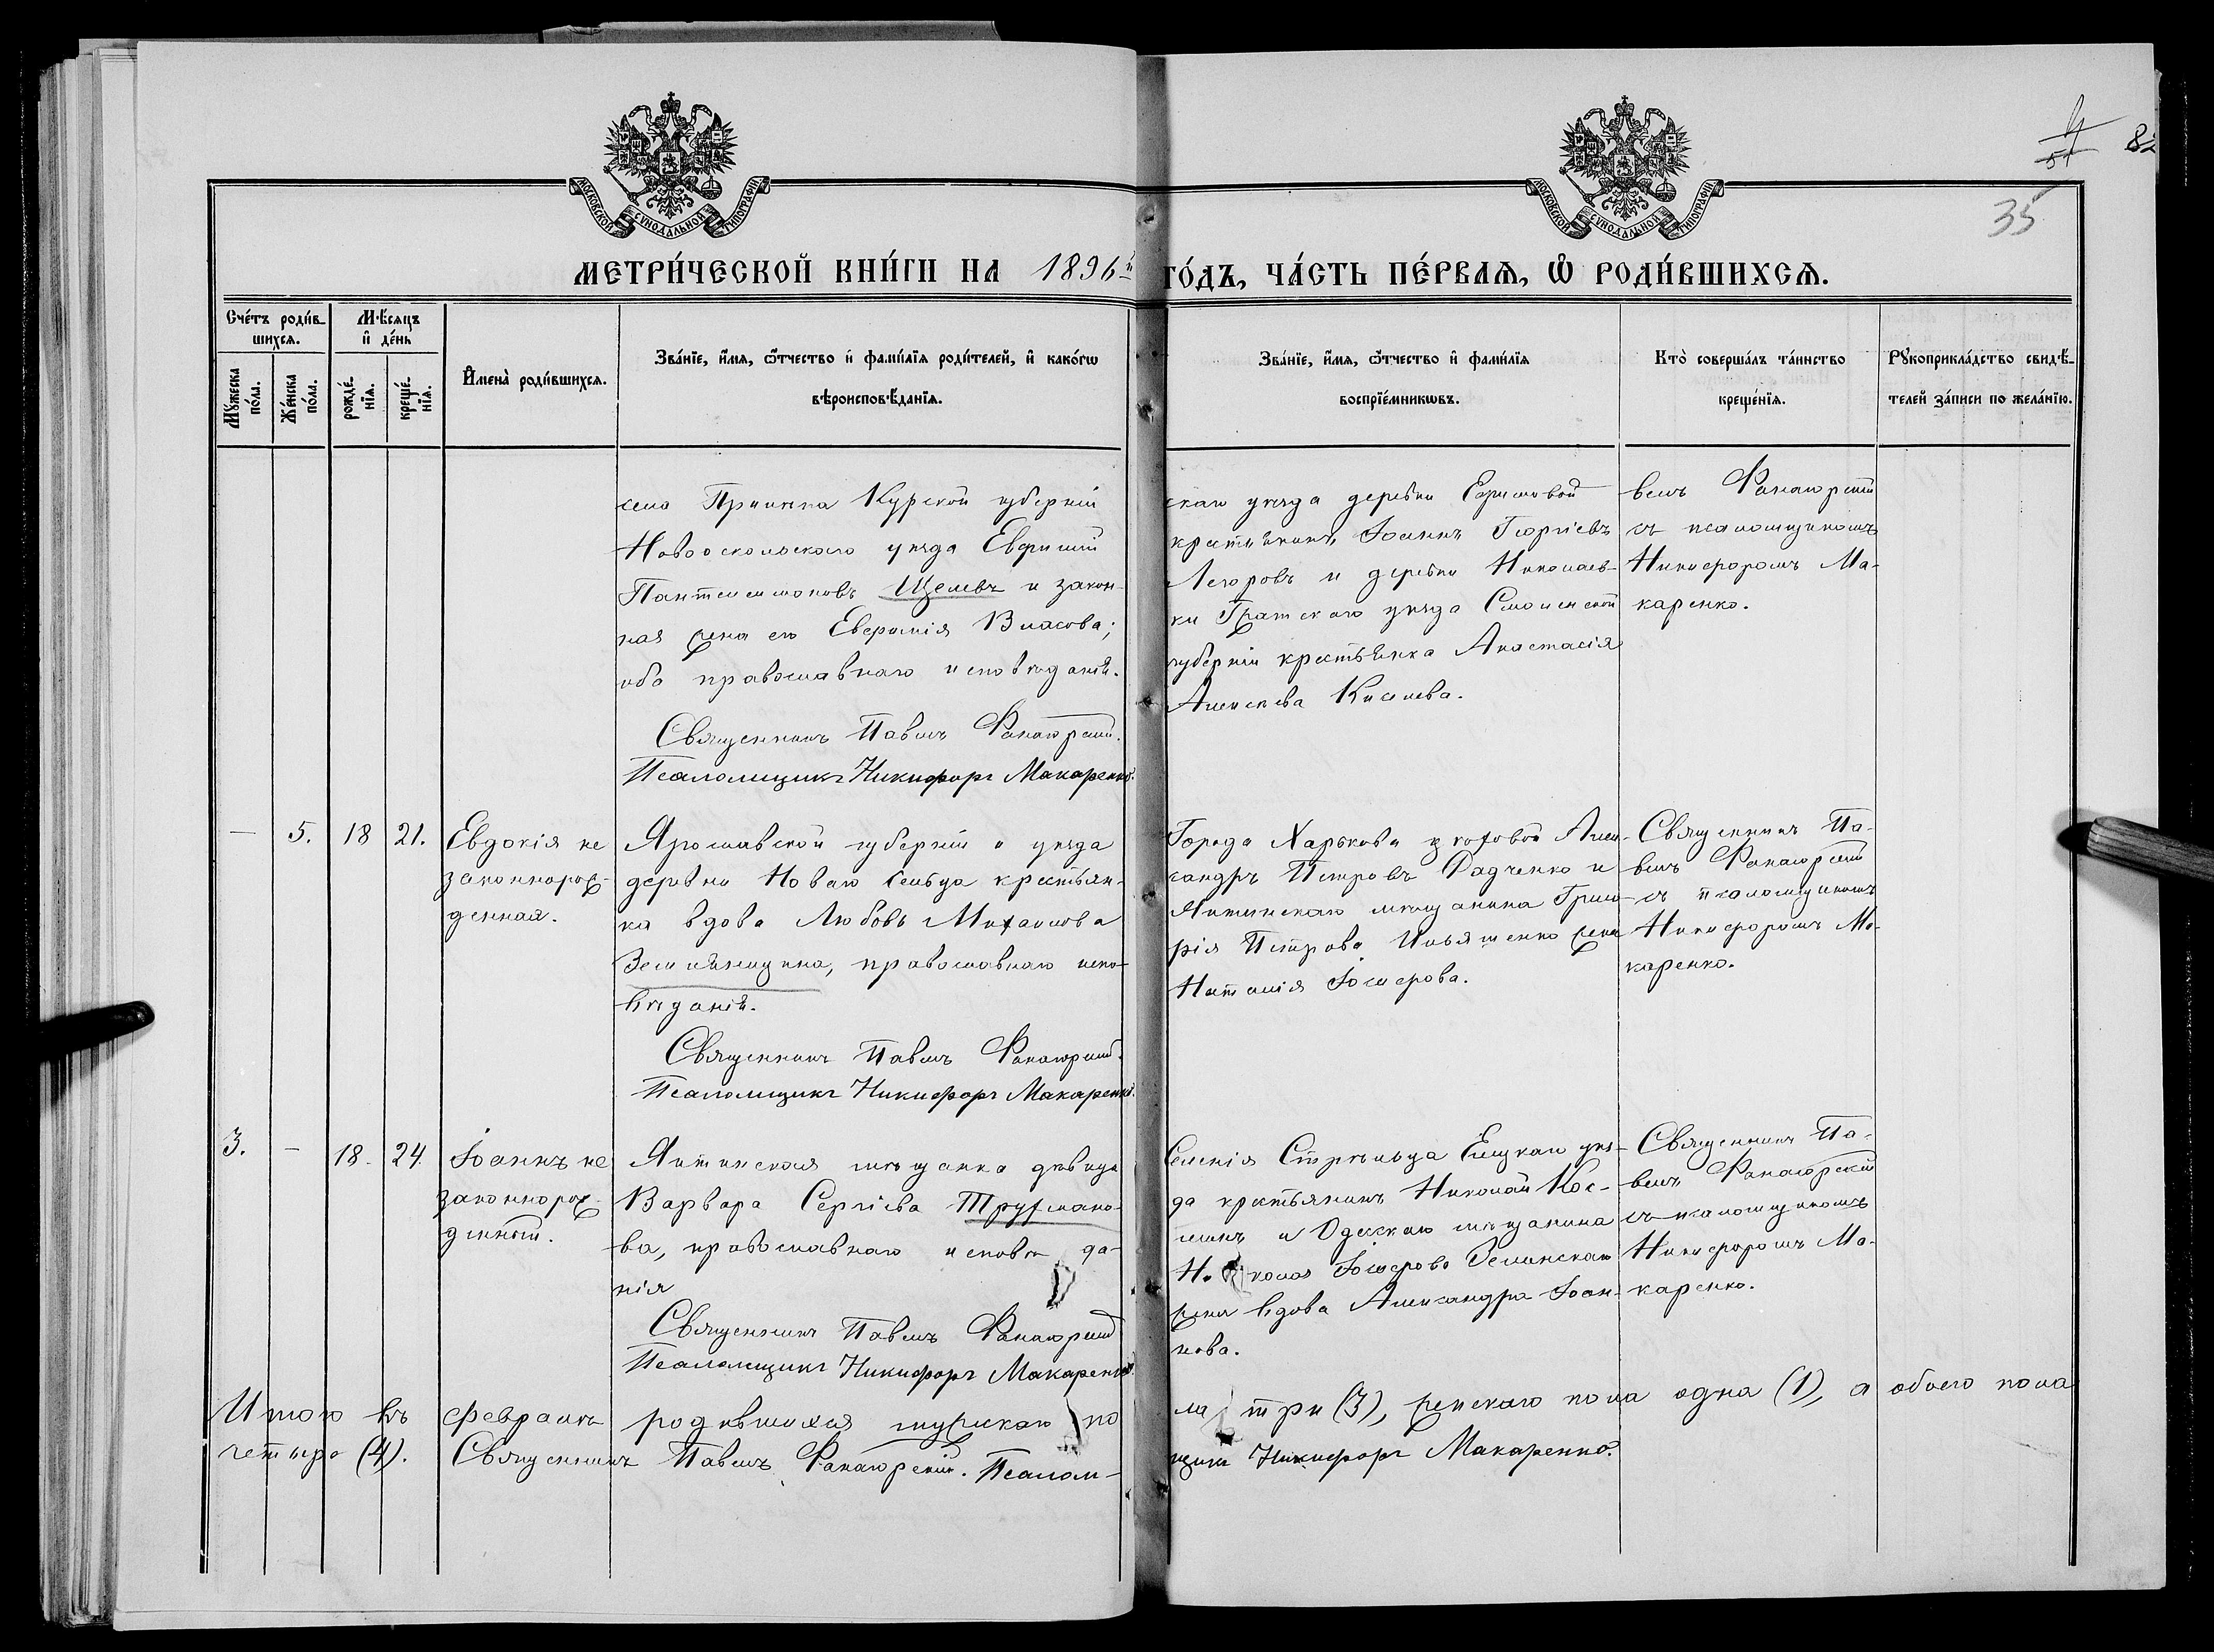 МОСКОВСКОЙ СУНОДАЛЬНОЙ ТИПОГРАФІИ
МОСКОВСКОЙ СУНОДАЛЬНОЙ ТИПОГРАФІИ
82
35
МЕТРИ́ЧЕСКОЙ КНИ́ГИ НА 1896й
ГО́ДЪ, ЧА́СТЬ ПЕ́РВАѦ, Ѡ РОДИ́ВШИХСѦ.
Сче́тъ роди́в-
шихсѧ.
Мѣ́сѧцъ
и҆ де́нь
Мꙋ́жеска
по́ла.
Же́нска
по́ла.
рожде́-
нїѧ.
креще́-
нїѧ.
И҆мена̀ роди́вшихсѧ.
Зва́нїе, и҆́мѧ, ѻ҆́тчество и҆ фами́лїѧ роди́телей, и҆ како́гѡ
вѣроисповѣ́данїѧ.
Зва́нїе, и҆́мѧ, ѻ҆́тчество и҆ фами́лїѧ
воспрїе́мникѡвъ.
Кто̀ соверша́лъ та́инство
креще́нїѧ.
Рꙋкоприкла́дство свидѣ́-
телей за́писи по жела́нїю.
села Курской губерніи
Новооскольскаго уѣзда Евфимій
Пантелеимоновъ Щелевъ и закон-
ная жена его Евфимія Власова;
оба православнаго исповѣданія.
Священникъ Павелъ
Псаломщикъ Никифоръ Макаренко.
скаго уѣзда деревни
крестьянинъ Іоаннъ Георгіевъ
и деревни Николаев-
ки уѣзда Смоленской
губерніи крестьянка Анастасія
Алексѣева Киселева.
велъ
съ псаломщикомъ
Никифоромъ Ма-
каренко.
— 5. 18 21. Евдокія не
законнорож-
денная.
Ярославской губерніи и уѣзда
деревни Новаго Сельца крестьян-
ка вдова Любовь Михаилова
православнаго испо-
вѣданія.
Священникъ Павелъ
Псаломщикъ Никифоръ Макаренко.
Города Харькова цеховой Алек-
сандръ Петровъ Дадченко и
Ялтинскаго мѣщанина Григо-
рія Петрова жена
Наталія
Священникъ Па-
велъ
съ псаломщикомъ
Никифоромъ Ма-
каренко.
3. — 18. 24. Іоаннъ не
законнорож-
денный.
Ялтинская мѣщанка дѣвица
Варвара Сергіева Трухмано-
ва, православнаго исповѣда-
нія
Священникъ Павелъ
Псаломщикъ Никифоръ Макаренко.
Селенія Стрѣльца Елецкаго уѣз-
да крестьянинъ Николай Кос-
и Одесскаго мѣщанина
Николая
жена вдова Александра Іоан-
нова.
Священникъ Па-
велъ
съ псаломщикомъ
Никифоромъ Ма-
каренко.
Итого въ февралѣ родившихся мужскаго по
ла три (3), женскаго пола одна (1), а обоего пола
четыре (4). Священникъ Павелъ Псалом-
щикъ Никифоръ Макаренко.